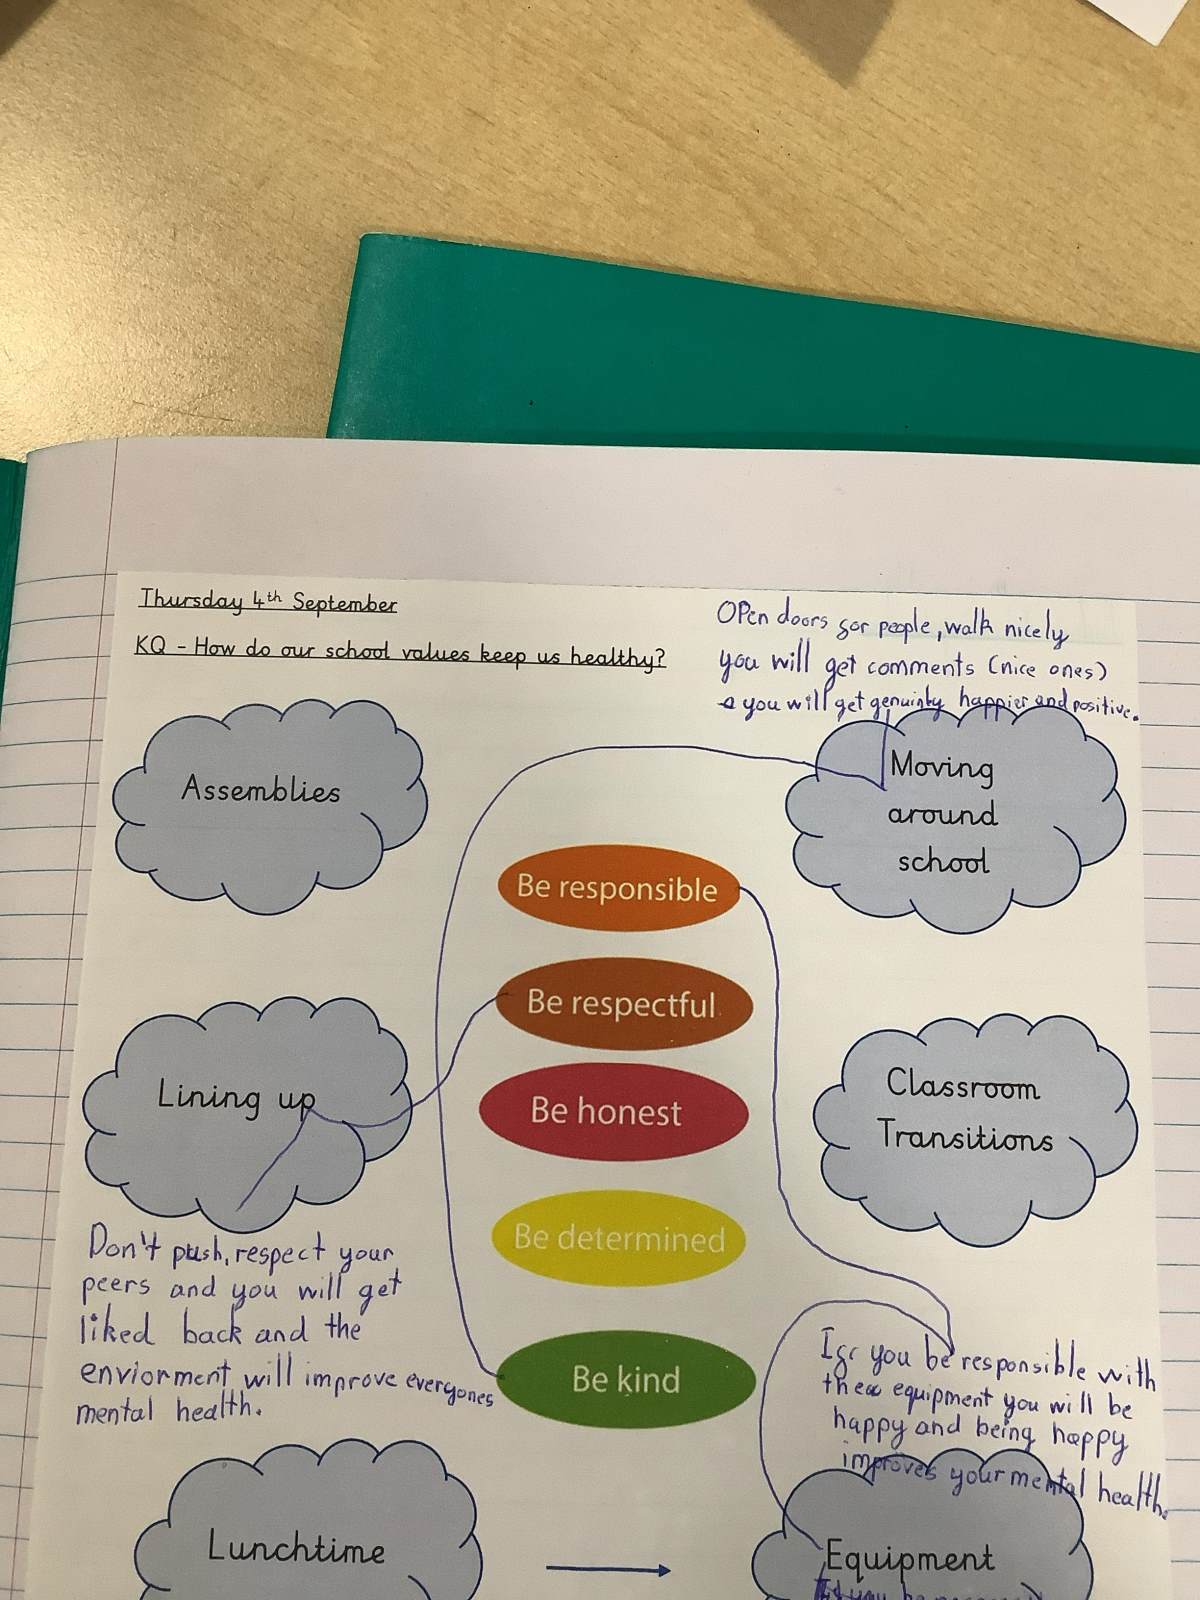 Thursday 4th September
KQ - How do our school values keep us healthy?
OPen doors for people, walk nicely
you will get comments (nice ones)
you will get genuinly happier and positive.
Assemblies
Moving
around
school
Be responsible
Be respectful
Lining up
Classroom
Transitions
Be honest
Be determined
Don't push, respect your
peers and you will get
liked back and the
enviorment will improve everyones
mental health.
Be kind
If you be responsible with
the equipment you will be
happy and being happy
improves your mental health.
Lunchtime
Equipment